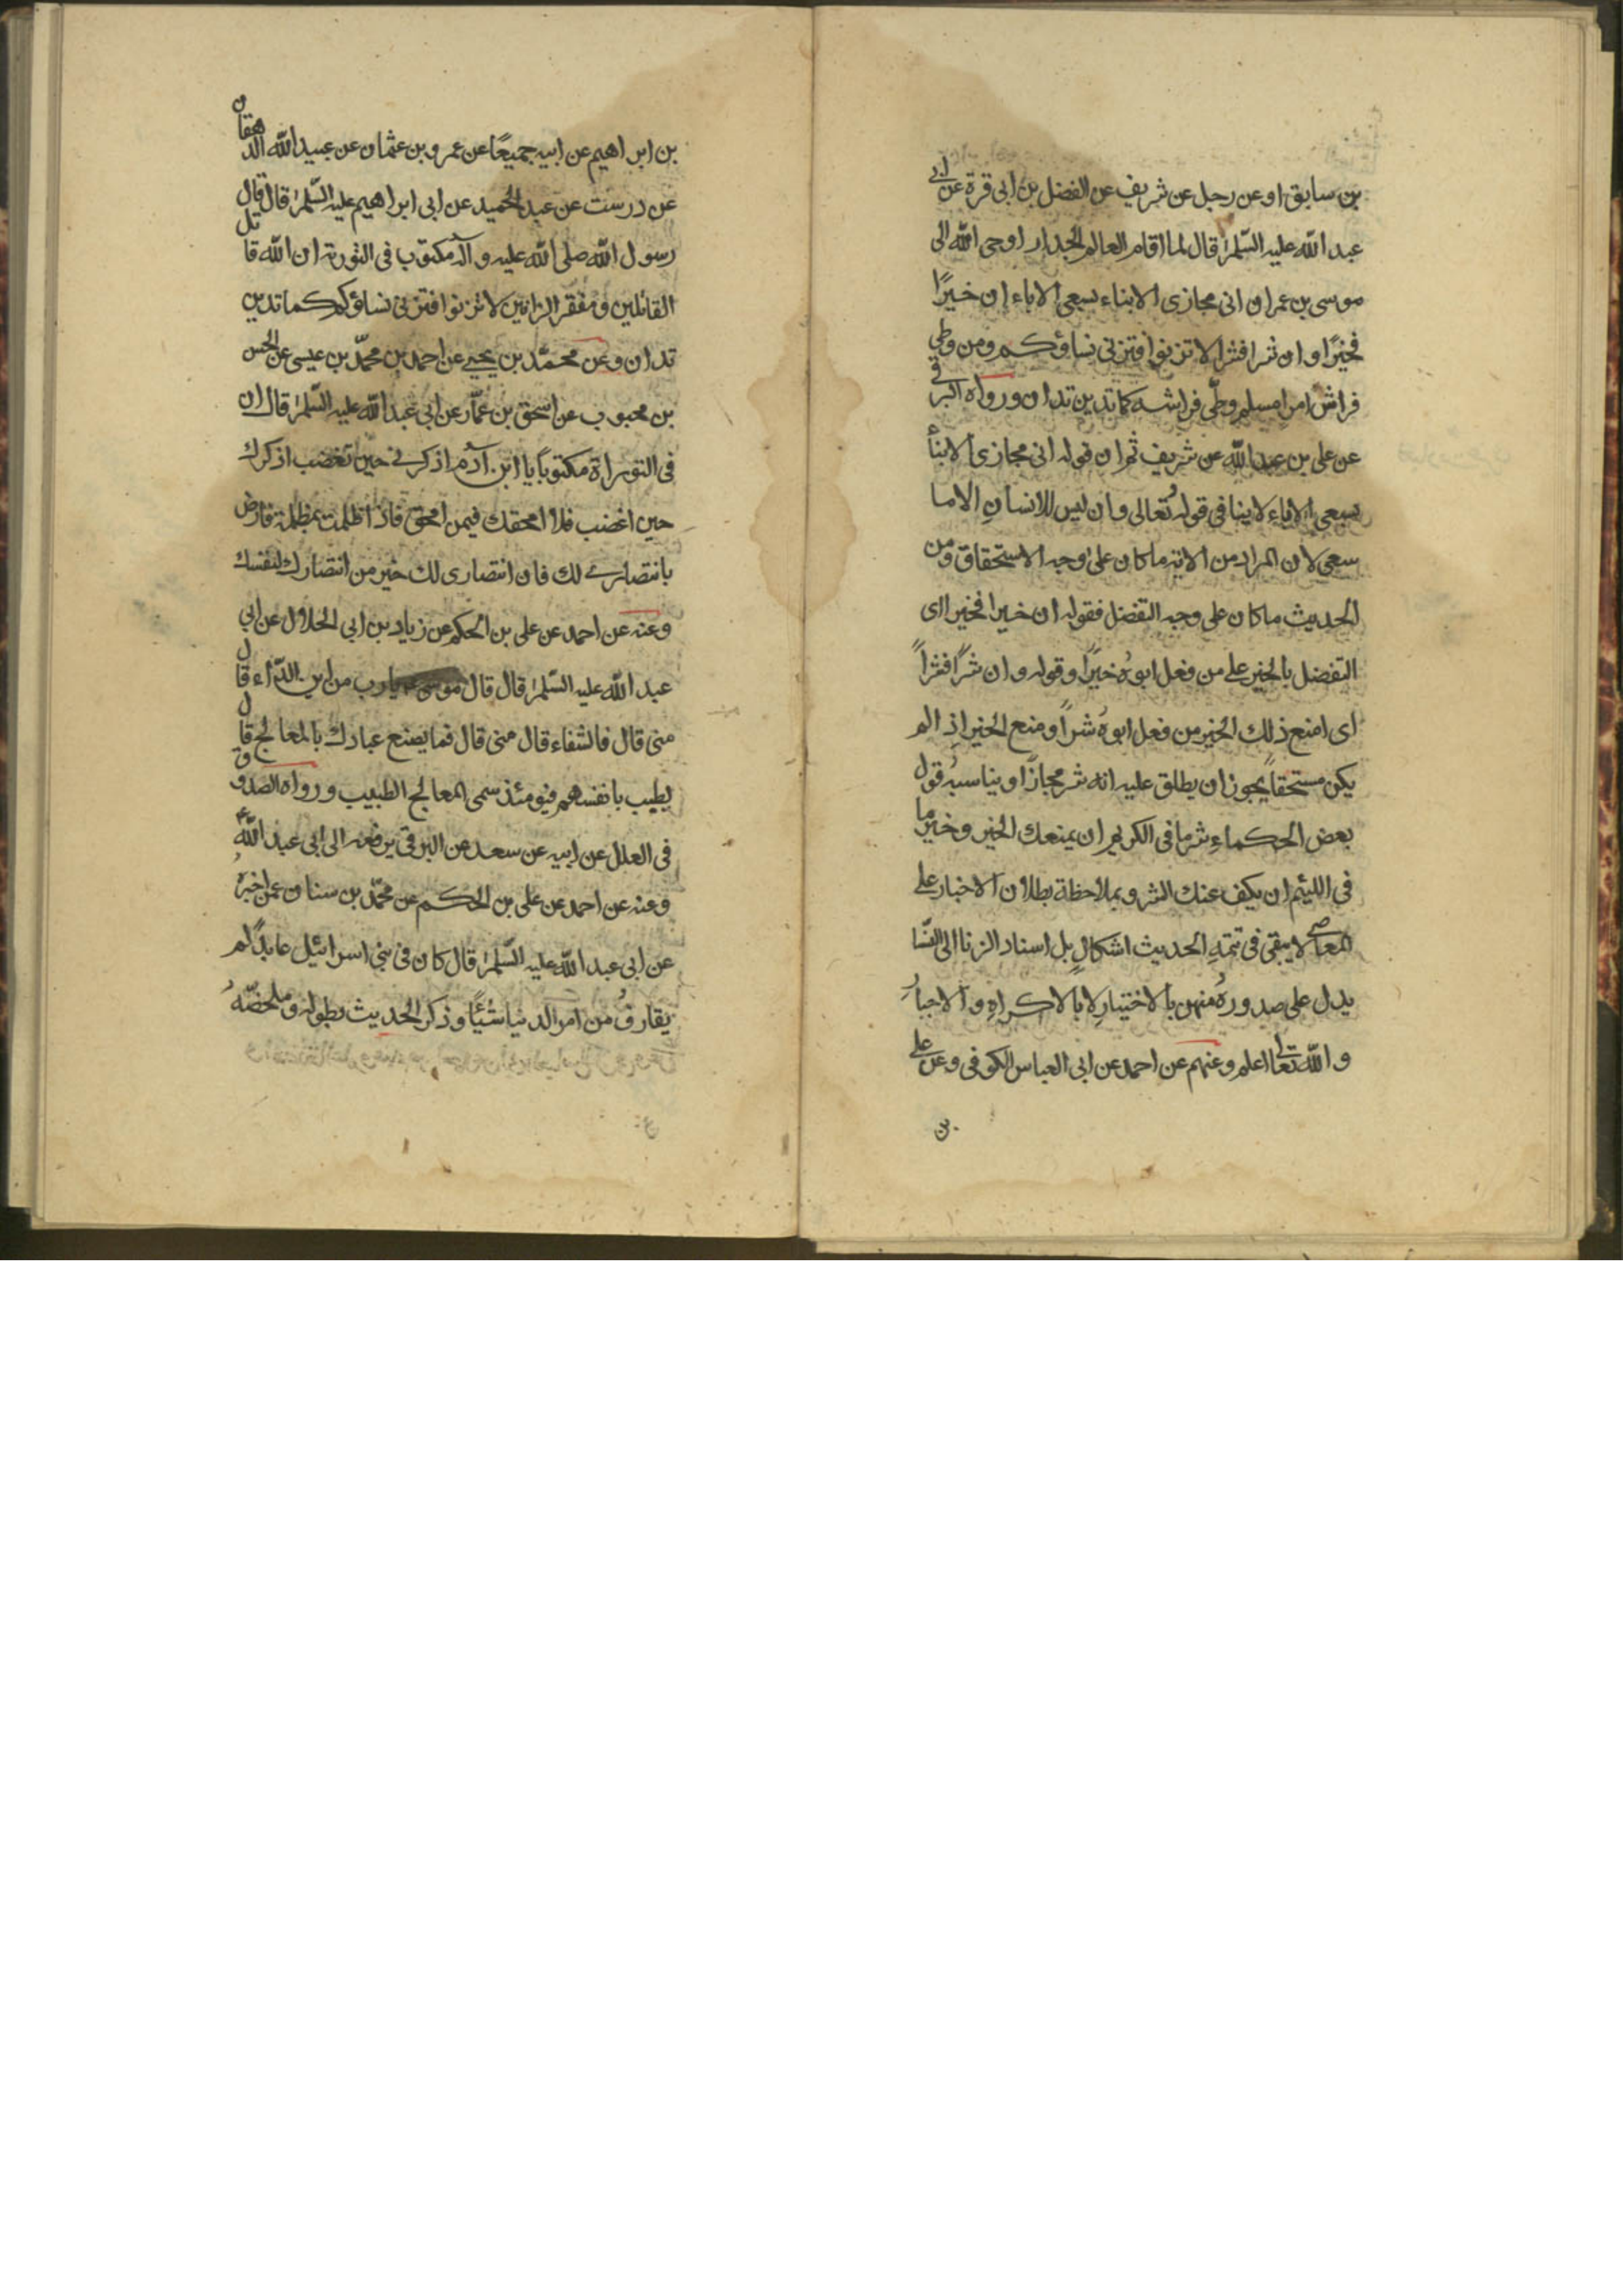 بن سابق او عن رجل عن شريف عن الفضل بن ابى قرة عن ابى
عبد الله عليه السّلم قال لما اقام العالم الجدار اوحى الله الى
موسى بن عمران انى مجازى الابناء بسعى الاباء ان خيرًا
فخيرًا وان شرا فشرا لا تزنوا فتزنى نساؤكم ومن وطى
فراش امرا مسلم وطّى فراشه كما تدين تدان ورواه البرقى
عن على بن عبد الله عن شريف ثم ان قوله انى مجازى الابنأ
بسعى الاباءِ لا ينافى قوله تُعالى وان ليس للانسانِ الا ما
سعى لان المراد من الاية ما كان على وجه الاستحقاق ومن
الحديث ما كان على وجه التفضل فقوله ان خيرا فخيرا اى
التفضل بالخير على من فعل ابوهُ خيرًا وقوله وان شرًا فشراً
اى امنع ذلك الخير من فعل ابوهُ شراً ومنع الخير اذِا لم
يكن مستحقاً يجوز ان يطلق عليه انه شر مجازًا ويناسبهُ قول
بعض الحكماءِ شر ما فى الكريم ان يمنعك الخير وخير ما
فى اللئيم ان يكف عنك الشر وبملاحظة بطلان الاخبار على
المعاصى لا يبقى فى تتمةِ الحديث اشكالٍ بل اسناد الزنا الى النّسا
يدل على صدورهُ منهن بالاختيارِ لا بالاكراهِ والاجبارُ
والله تعالى اعلم وعنهم عن احمد عن ابى العباس الكوفى وعن على
بن
بن ابراهيم عن ابيه جميعًا عن عمرو بن عثمان عن عبيد الله الدهقان
عن درست عن عبد الحميد عن ابى ابراهيم عليه السّلم قال قال
رسول الله صلى الله عليه وآله مكتوب فى التورية ان الله قاتل
القاتلين ومفقر الزانين لا تزنوا فتزنى نساؤكم كما تدين
تدان وعن محمّد بن يحيى عن احمد بن محمّد بن عيسى عن الحسن
بن محبوب عن اسحق بن عمّار عن ابى عبد الله عليه السّلم قال ان
فى التوراة مكتوباً يا ابن آدم اذكرنى حين تغضب اذكرك
حين اغضب فلا امحقك فيمن امحق فاذا ظلمت بمظلمة فارض
بانتصارى لك فان انتصارى لك خير من انتصارك لنفسك
وعنه عن احمد عن على بن الحكم عن زياد بن ابى الحلال عن ابى
عبد الله عليه السّلم قال قال موسى يا رب من اين الدّاء قال
منى قال فالشفاء قال منى قال فما يصنع عبادك بالمعالج قال
يطيب بانفسهم فيومئذ سمى المعالج الطبيب ورواه الصدوق
فى العلل عن ابيه عن سعد عن البرقى يرفعه الى ابى عبد الله ع
وعنه عن احمد عن على بن الحكم عن محمّد بن سنان عمن اخبرهُ
عن ابى عبد الله عليه السّلم قال كان فى بنى اسرائيل عابدًا لم
يقارفُ من امر الدنيا شيئًا وذكر الحديث بطوله وملخصّهُ